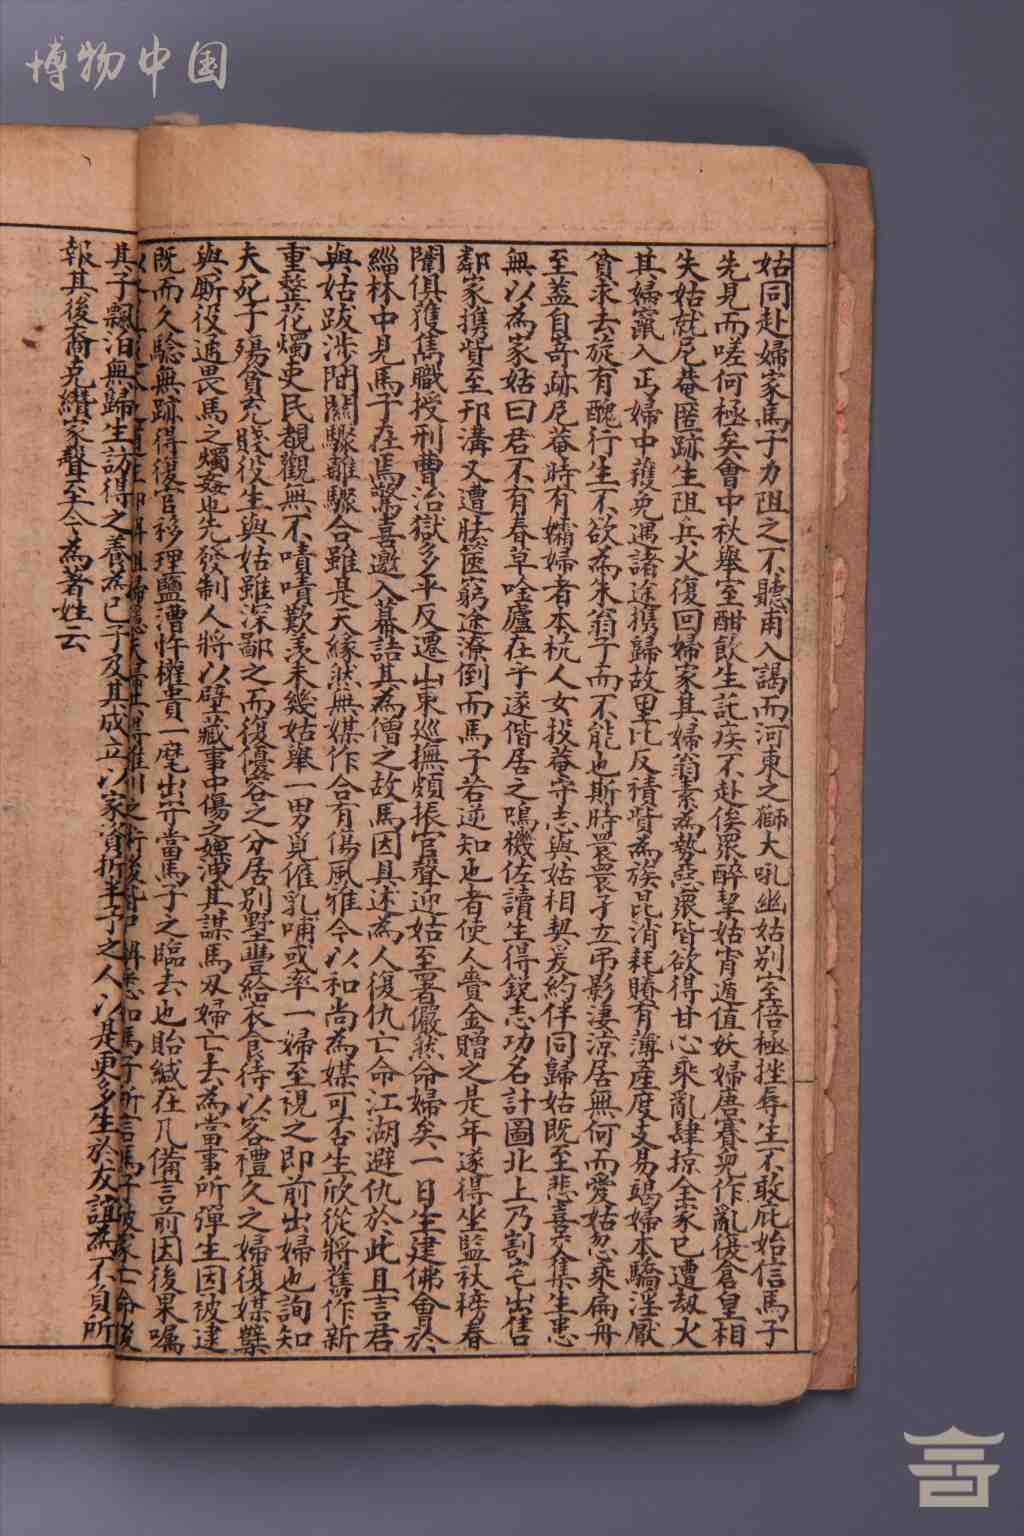 博物中国
姑同赴婦家馬子力阻之不聽甫入謁而河東之獅大吼幽姑别室倍極挫辱生不敢庇始信馬子
先見而嗟何極矣會中秋舉室酣飲生託疾不赴俟眾醉挈姑宵遁值妖婦唐賽兒作亂倉皇相
失姑就尼菴匿跡生阻兵火復回婦家其婦翁素為勢惡眾皆欲得甘心乘亂肆掠全家已遭劫火
其婦竄入丐婦中獲免遇諸途携歸故里比反積貲為族昆消耗賸有薄產度支易竭婦本驕淫厭
貧求去旋有醜行生不欲為朱翁子而不能也斯時煢煢孑立弔影凄涼居無何而愛姑忽乘扁舟
至蓋自寄跡尼菴時有孀婦者本杭人女投菴守志與姑相契爰約伴同歸姑既至悲喜交集生患
無以為家姑曰君不有春草唫廬在乎遂偕居之鳴機佐讀生得銳志功名計圖北上乃割宅出售
鄰家携貲至邗溝又遭胠篋窮途潦倒而馬子若逆知也者使人賫金贈之是年遂得坐監秋榜春
闈俱獲雋職授刑曹治獄多平反遷山東巡撫頗振官聲迎姑至署儼然命婦矣一日生建佛會於
緇林中見馬子在焉驚喜邀入幕詰其為僧之故馬因具述為人復仇亡命江湖避仇於此且言君
與姑跋涉間關驟離驟合雖是天緣然無媒作合有傷風雅今以和尚為媒可否生欣從將舊作新
重整花燭吏民覩觀無不嘖嘖歎羡未幾姑舉一男覓傭乳哺或率一婦至視之即前出婦也詢知
夫死子殤貧充賤役生與姑雖深鄙之而復優容之分居别墅豐給衣食待以客禮久之婦復媒孽
與廝役通畏馬之燭姦也先發制人將以壁藏事中傷之婢洩其謀馬刃婦亡去為當事所彈生因被逮
既而久驗無跡得復官移理鹽漕忤權貴一麾出守當馬子之臨去也貽緘在几備言前因後果囑
其子飄泊無歸生訪得之養為己子及其成立以家資折半予之人以是更多生於友誼為不負所
報其後裔克纘家聲至今為著姓云